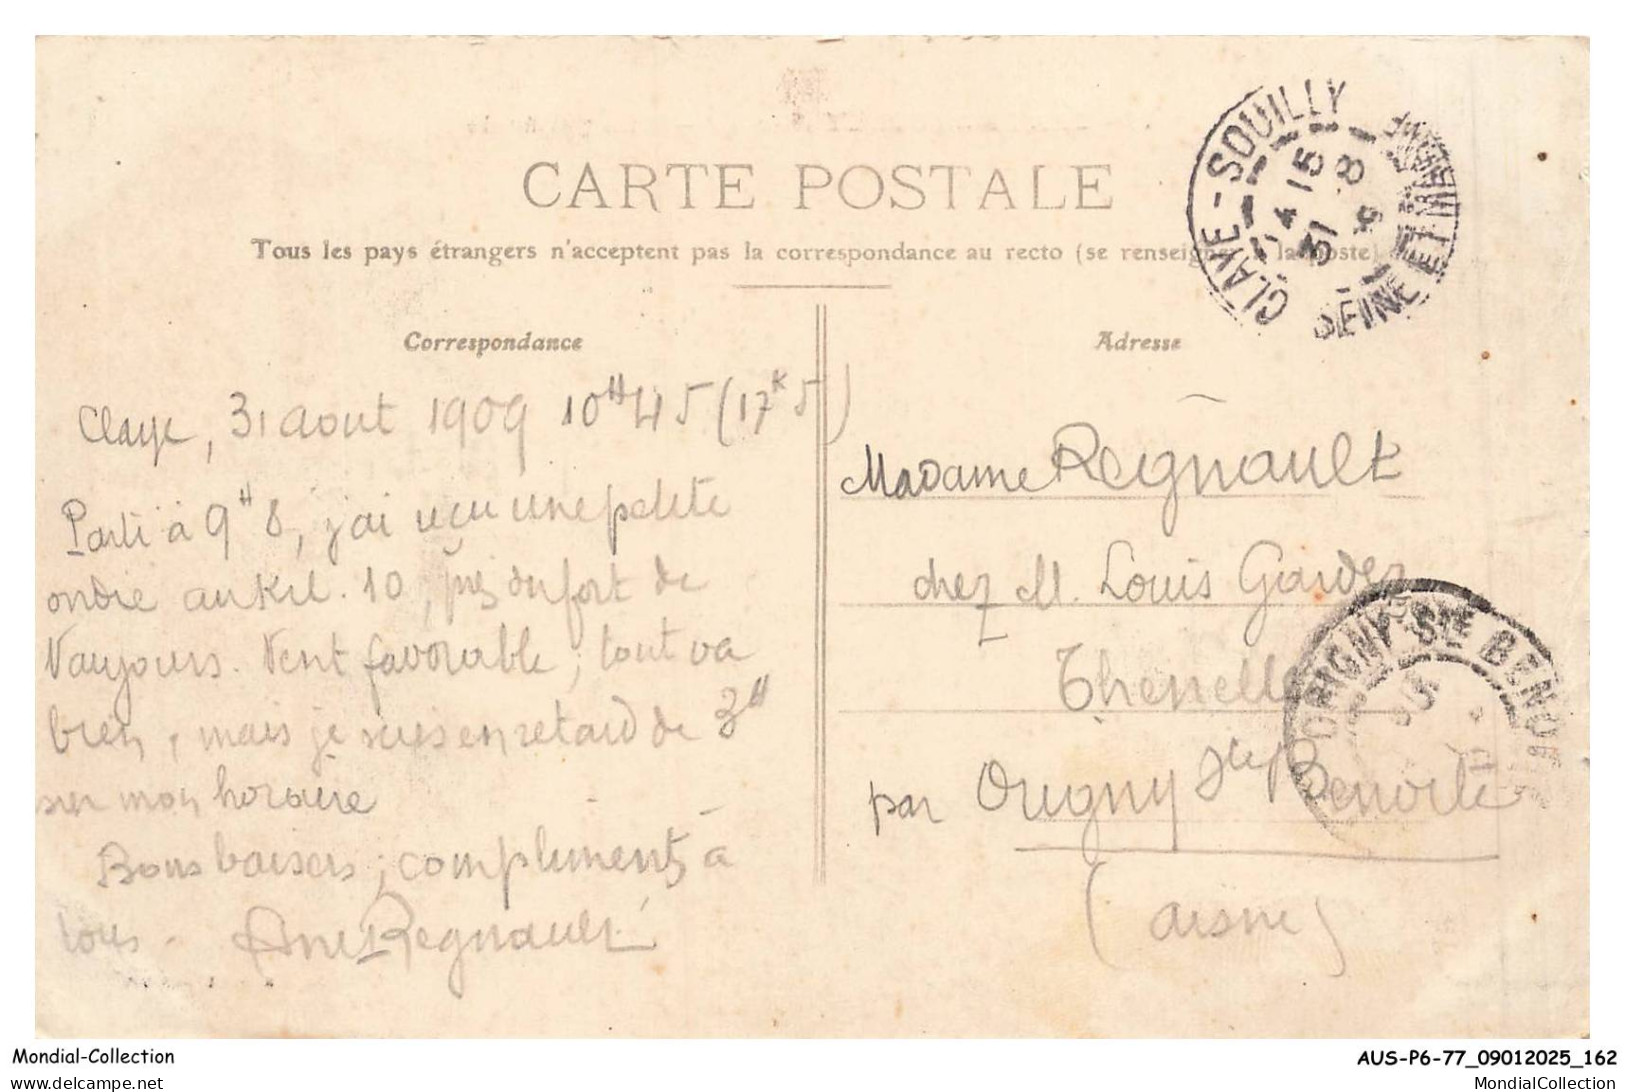 CARTE POSTALE
Tous les pays étrangers n'acceptent pas la correspondance au recto (se renseigner à la poste)
Correspondance
Claye, 31 août 1909 10H45 (17K5)
Parti à 9H8, j'ai reçu une petite
ondée au Kil. 10, près du fort de
Vaujours. Vent favorable ; tout va
bien, mais je suis en retard de 3H
sur mon horaire
Bons baisers ; compliments à
tous. Regnault
Adresse
Madame Regnault
chez M. Louis
Thenelles
par Origny Ste Benoite
(Aisne)
CLAYE-SOUILLY
15
31 8
SEINE ET MARNE
ORIGNY-STE BENOITE
Mondial-Collection
AUS-P6-77_09012025_162
www.delcampe.net
MondialCollection